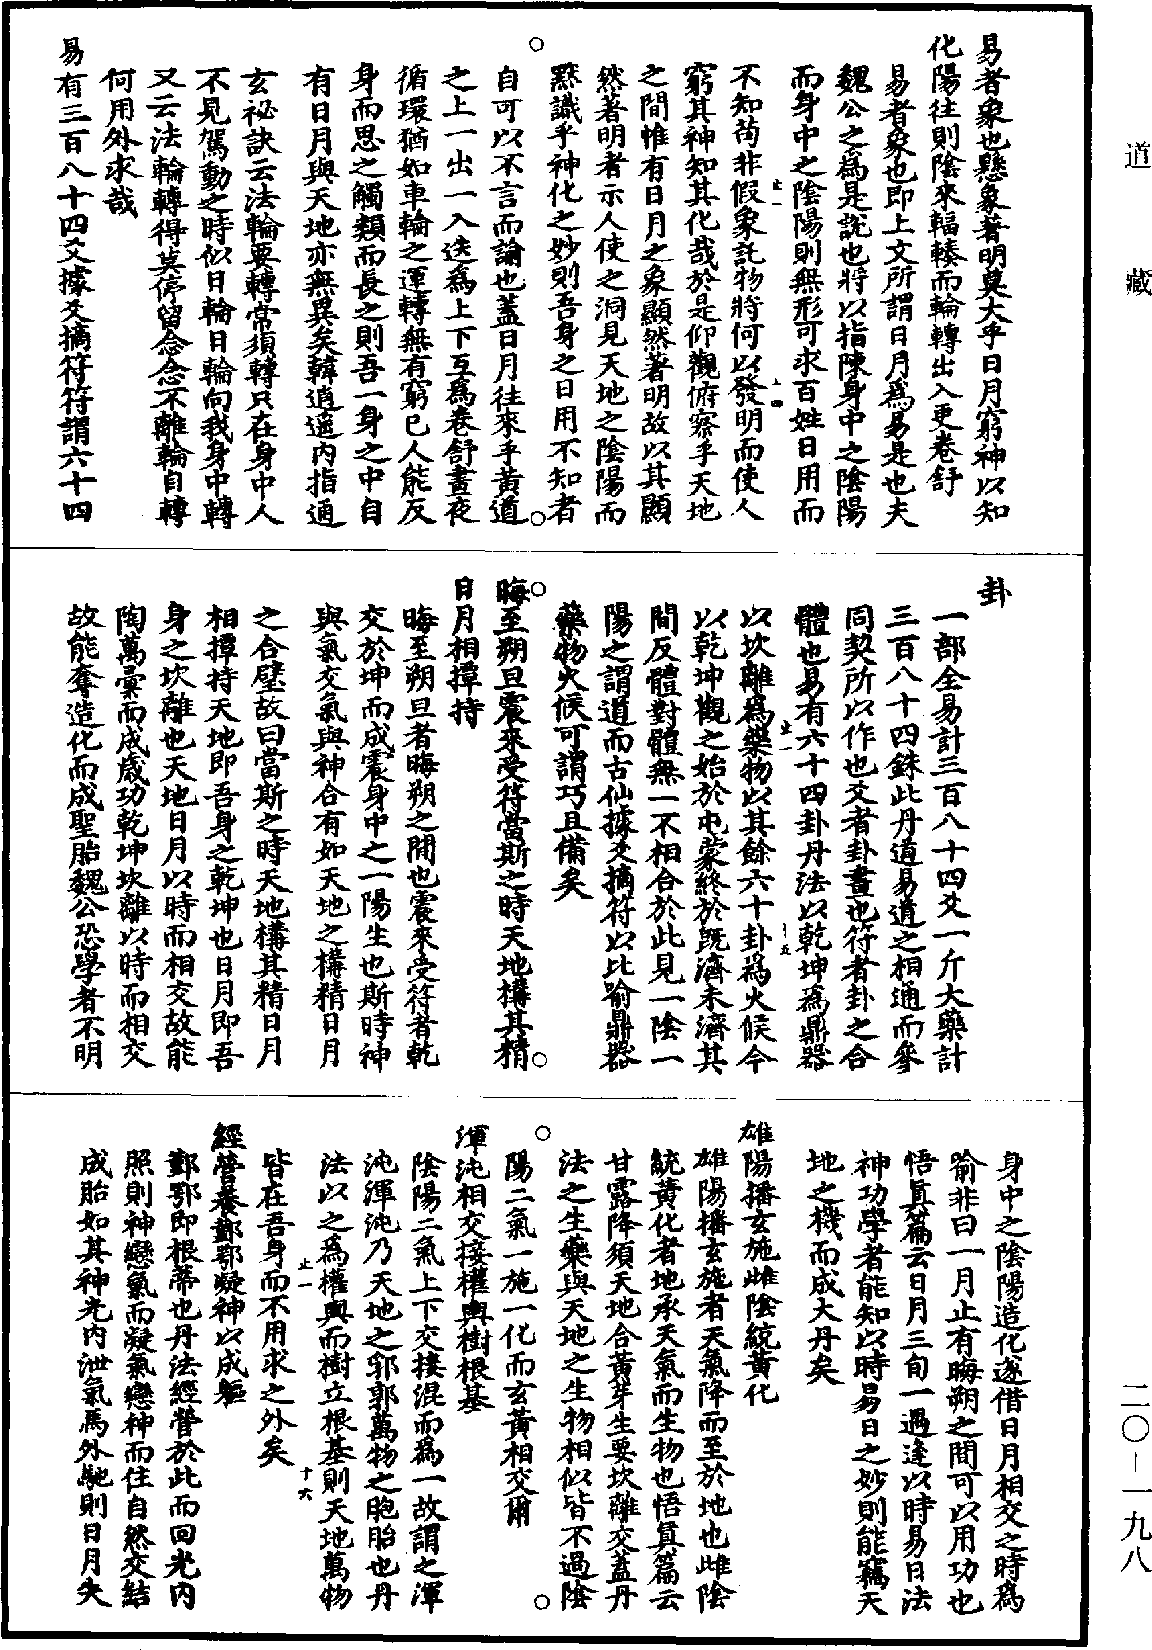 道藏
易者象也懸象著明莫大乎日月窮神以知
化陽往則陰來輻輳而輪轉出入更卷舒
易者象也即上文所謂日月爲易是也夫
魏公之爲是說也將以指陳身中之陰陽
而身中之陰陽則無形可求百姓日用而
不知苟非假象託物將何以發明而使人
窮其神知其化哉於是仰觀俯察乎天地
之間惟有日月之象顯然著明故以其顯
然著明者示人使之洞見天地之陰陽而
默識乎神化之妙則吾身之日用不知者
自可以不言而諭也蓋日月往來乎黃道
之上一出一入迭爲上下互爲卷舒晝夜
循環猶如車輪之運轉無有窮已人能反
身而思之觸類而長之則吾一身之中自
有日月與天地亦無異矣韓逍遙內指通
玄祕訣云法輪要轉常須轉只在身中人
不見駕動之時似日輪日輪向我身中轉
又云法輪轉得莫停留念念不離輪自轉
何用外求哉
易有三百八十四爻據爻摘符符謂六十四
卦
一部全易計三百八十四爻一斤大藥計
三百八十四銖此丹道易道之相通而參
同契所以作也爻者卦畫也符者卦之合
體也易有六十四卦丹法以乾坤爲鼎器
以坎離爲藥物以其餘六十卦爲火候今
以乾坤觀之始於屯蒙終於既濟未濟其
間反體對體無一不相合於此見一陰一
陽之謂道而古仙據爻摘符以比喻鼎器
藥物火候可謂巧且備矣
晦至朔旦震來受符當斯之時天地構其精
日月相撢持
晦至朔旦者晦朔之間也震來受符者乾
交於坤而成震身中之一陽生也斯時神
與氣交氣與神合有如天地之構精日月
之合璧故曰當斯之時天地構其精日月
相撢持天地即吾身之乾坤也日月即吾
身之坎離也天地日月以時而相交故能
陶萬彙而成歲功乾坤坎離以時而相交
故能奪造化而成聖胎魏公恐學者不明
身中之陰陽造化遂借日月相交之時爲
喻非曰一月止有晦朔之間可以用功也
悟真篇云日月三旬一遇逢以時易日法
神功學者能知以時易日之妙則能竊天
地之機而成大丹矣
雄陽播玄施雌陰統黃化
雄陽播玄施者天氣降而至於地也雌陰
統黃化者地承天氣而生物也悟真篇云
甘露降須天地合黃芽生要坎離交蓋丹
法之生藥與天地之生物相似皆不過陰
陽二氣一施一化而玄黃相交爾
渾沌相交接權輿樹根基
陰陽二氣上下交接混而爲一故謂之渾
沌渾沌乃天地之郛郭萬物之胞胎也丹
法以之爲權輿而樹立根基則天地萬物
皆在吾身而不用求之外矣
經營養鄞鄂凝神以成軀
鄞鄂即根蒂也丹法經營於此而回光內
照則神戀氣而凝氣戀神而住自然交結
成胎如其神光內泄氣馬外馳則日月失
二〇－一九八